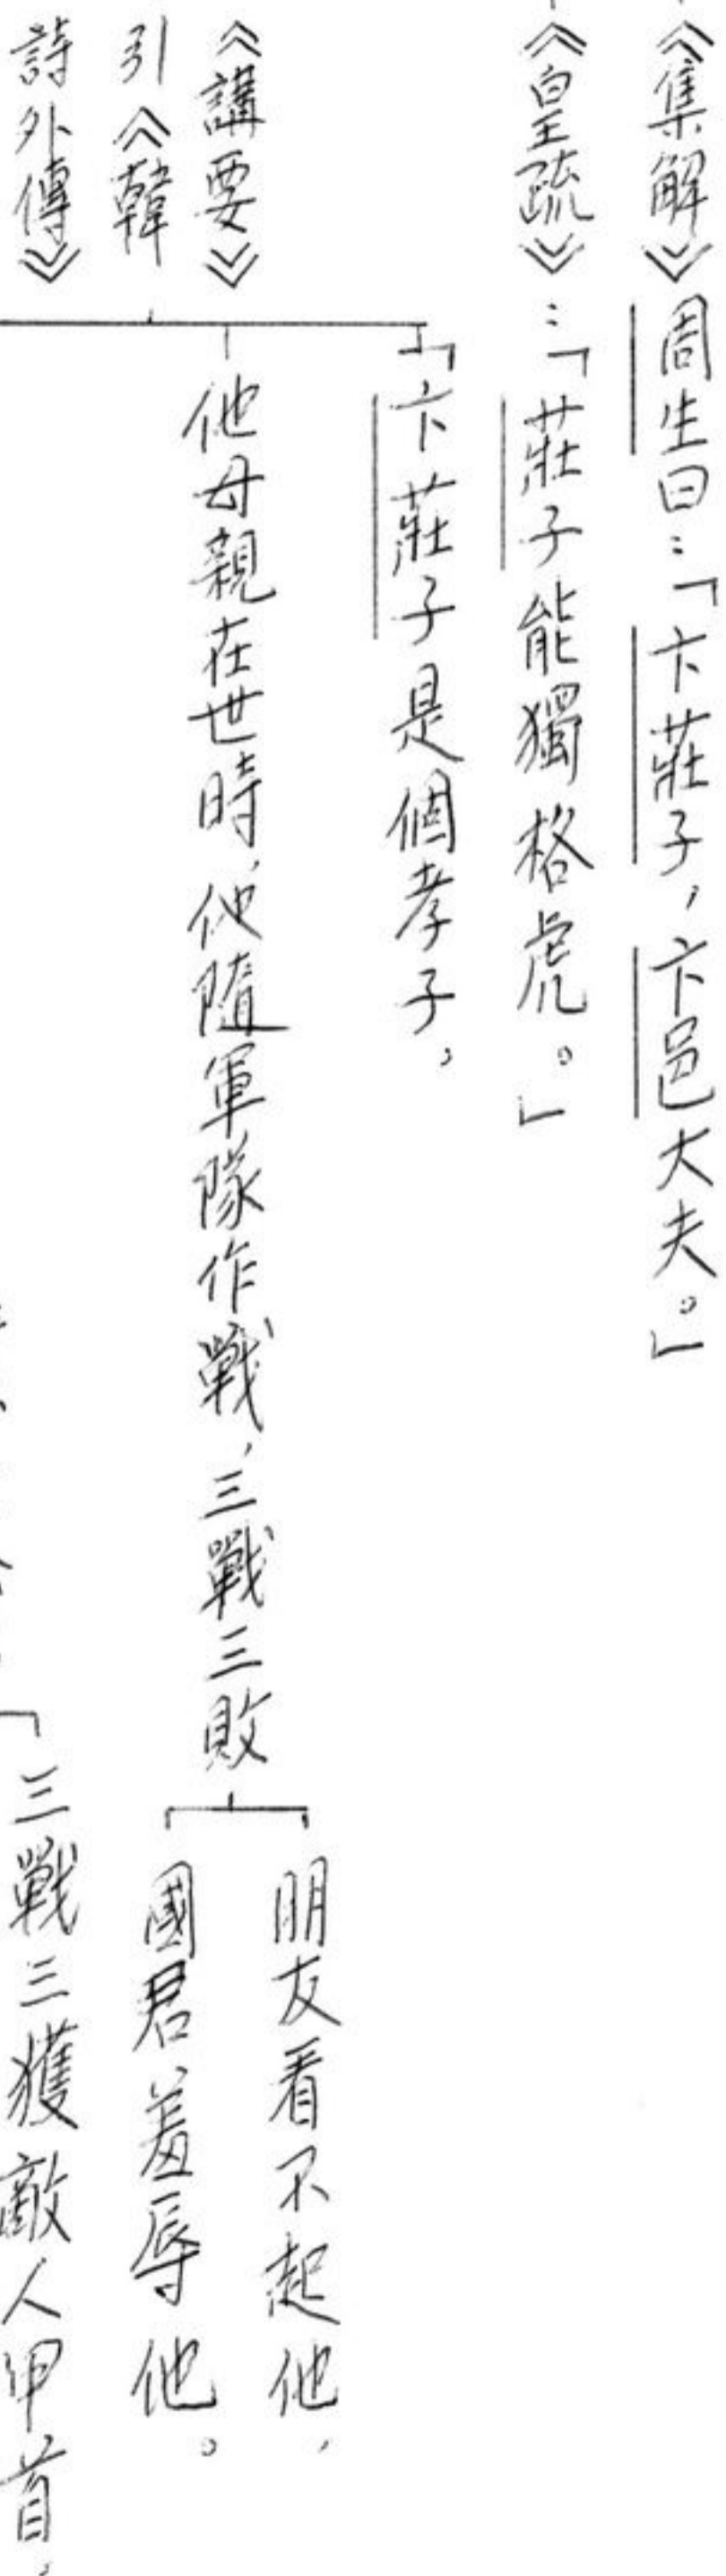 《集解》周生曰：「卞莊子，卞邑大夫。」
《皇疏》：「莊子能獨格虎。」
《講要》
引《韓
詩外傳》
「卞莊子是個孝子。
他母親在世時，他隨軍隊作戰，三戰三敗
朋友看不起他，
國君羞辱他。
三戰三獲敵人甲首，